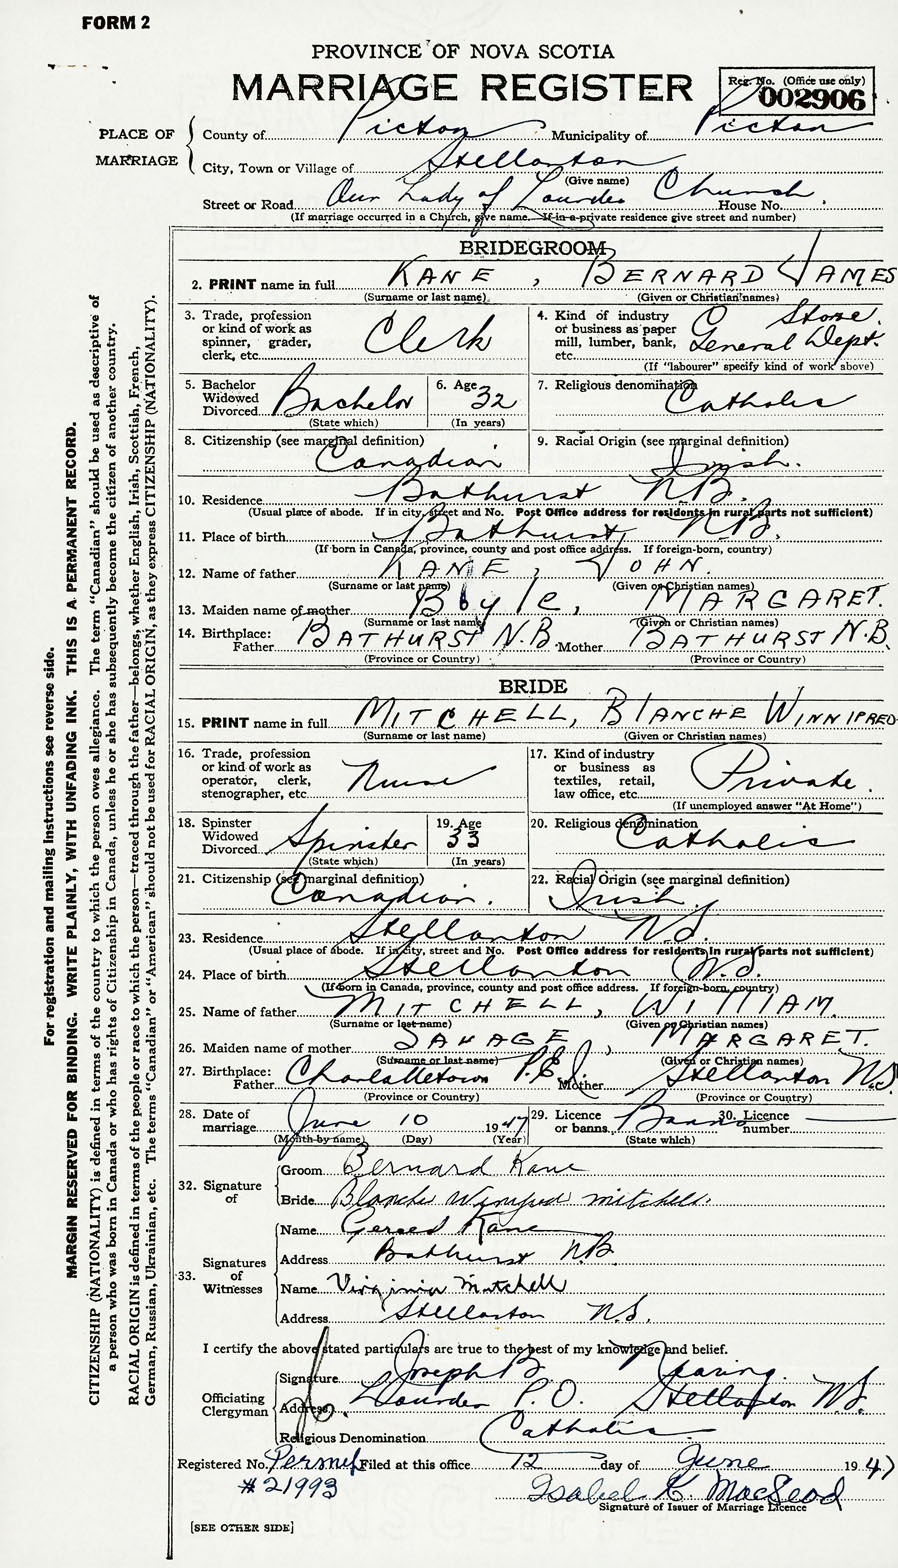 FORM 2
PROVINCE OF NOVA SCOTIA
MARRIAGE REGISTER
Reg. No. (Office use only)
002906
PLACE OF MARRIAGE
County of Pictou Municipality of Pictou
City, Town or Village of Stellarton
(Give name)
Street or Road Our Lady of Lourdes Church House No.
(If marriage occurred in a Church, give name. If in a private residence give street and number)
BRIDEGROOM
2. PRINT name in full KANE, BERNARD JAMES
(Surname or last name) (Given or Christian names)
3. Trade, profession or kind of work as spinner, grader, clerk, etc. Clerk
4. Kind of industry or business as paper mill, lumber, bank, etc. Store. General Dept.
(If "labourer" specify kind of work above)
5. Bachelor Widowed Divorced Bachelor
(State which)
6. Age 32
(In years)
7. Religious denomination Catholic
8. Citizenship (see marginal definition) Canadian
9. Racial Origin (see marginal definition) Irish.
10. Residence Bathurst N.B.
(Usual place of abode. If in city, street and No. Post Office address for residents in rural parts not sufficient)
11. Place of birth Bathurst, N.B.
(If born in Canada, province, county and post office address. If foreign-born, country)
12. Name of father KANE, JOHN.
(Surname or last name) (Given or Christian names)
13. Maiden name of mother Boyle, MARGARET.
(Surname or last name) (Given or Christian names)
14. Birthplace: Father BATHURST N.B. Mother BATHURST N.B.
(Province or Country) (Province or Country)
BRIDE
15. PRINT name in full MITCHELL, BLANCHE WINNIFRED
(Surname or last name) (Given or Christian names)
16. Trade, profession or kind of work as operator, clerk, stenographer, etc. Nurse
17. Kind of industry or business as textiles, retail, law office, etc. Private.
(If unemployed answer "At Home")
18. Spinster Widowed Divorced Spinster
(State which)
19. Age 33
(In years)
20. Religious denomination Catholic
21. Citizenship (see marginal definition) Canadian.
22. Racial Origin (see marginal definition) Irish.
23. Residence Stellarton N.S.
(Usual place of abode. If in city, street and No. Post Office address for residents in rural parts not sufficient)
24. Place of birth Stellarton N.S.
(If born in Canada, province, county and post office address. If foreign-born, country)
25. Name of father MITCHELL, WILLIAM.
(Surname or last name) (Given or Christian names)
26. Maiden name of mother SAVAGE, MARGARET.
(Surname or last name) (Given or Christian names)
27. Birthplace: Father Charlottetown P.E.I. Mother Stellarton N.S.
(Province or Country) (Province or Country)
28. Date of marriage June 10 1947
(Month by name) (Day) (Year)
29. Licence or banns Banns
(State which)
30. Licence number
32. Signature of
Groom Bernard Kane
Bride Blanche Winifred Mitchell.
33. Signatures of Witnesses
Name Kane
Address Bathurst N.B.
Name Virginia Mitchell
Address Stellarton N.S.
I certify the above stated particulars are true to the best of my knowledge and belief.
Officiating Clergyman
Signature Joseph B. Nearing
Address Lourdes P.O. Stellarton N.S.
Religious Denomination Catholic
Registered No. Filed at this office 12 day of June 1947
#21993
Isabel K. MacLeod
Signature of Issuer of Marriage Licence
[SEE OTHER SIDE]
For registration and mailing instructions see reverse side.
MARGIN RESERVED FOR BINDING. WRITE PLAINLY, WITH UNFADING INK. THIS IS A PERMANENT RECORD.
CITIZENSHIP (NATIONALITY) is defined in terms of the country to which the person owes allegiance. The term "Canadian" should be used as descriptive of
a person who was born in Canada or who has rights of Citizenship in Canada, unless he or she has subsequently become the citizen of another country.
RACIAL ORIGIN is defined in terms of the people or race to which the person—traced through the father—belongs, whether English, Irish, Scottish, French,
German, Russian, Ukrainian, etc. The terms "Canadian" or "American" should not be used for RACIAL ORIGIN, as they express CITIZENSHIP (NATIONALITY).